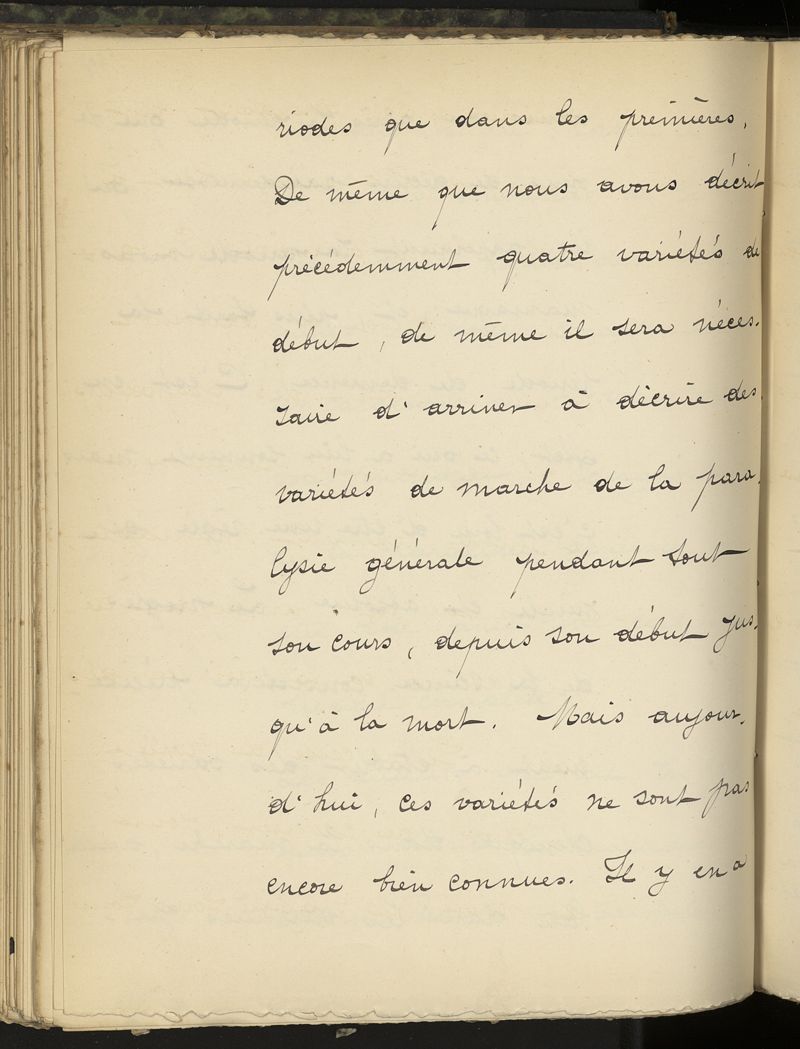 riodes que dans les premières.
De même que nous avons décrit
précédemment quatre variétés de
début, de même il sera néces-
saire d'arriver à décrire des
variétés de marche de la para-
lysie générale pendant tout
son cours, depuis son début jus-
qu'à la mort. Mais aujour-
d'hui, ces variétés ne sont pas
encore bien connues. Il y en a